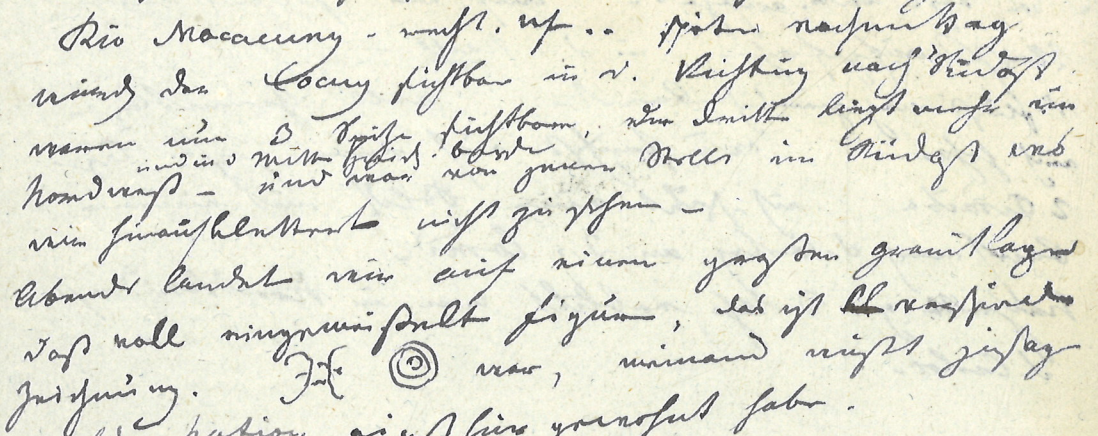 Rio Macacuny - recht. Uf.. später nachmittag
wird der Cocuy sichtbar in d. Richtung nach Südost
waren nur 3 Spitze sichtbar, der dritte liegt mehr im
und in d Mitte beide
Nordwest - und war von jener Stelle im Südost wo
wir hinaufklettert nicht zu sehen -
Abends landet wir auf einen großen granitlager
daß voll eingemeißelt Figuren, das ist
zeichnung. war, niemand wußt zu sagen
Nation hier gewohnt habe.